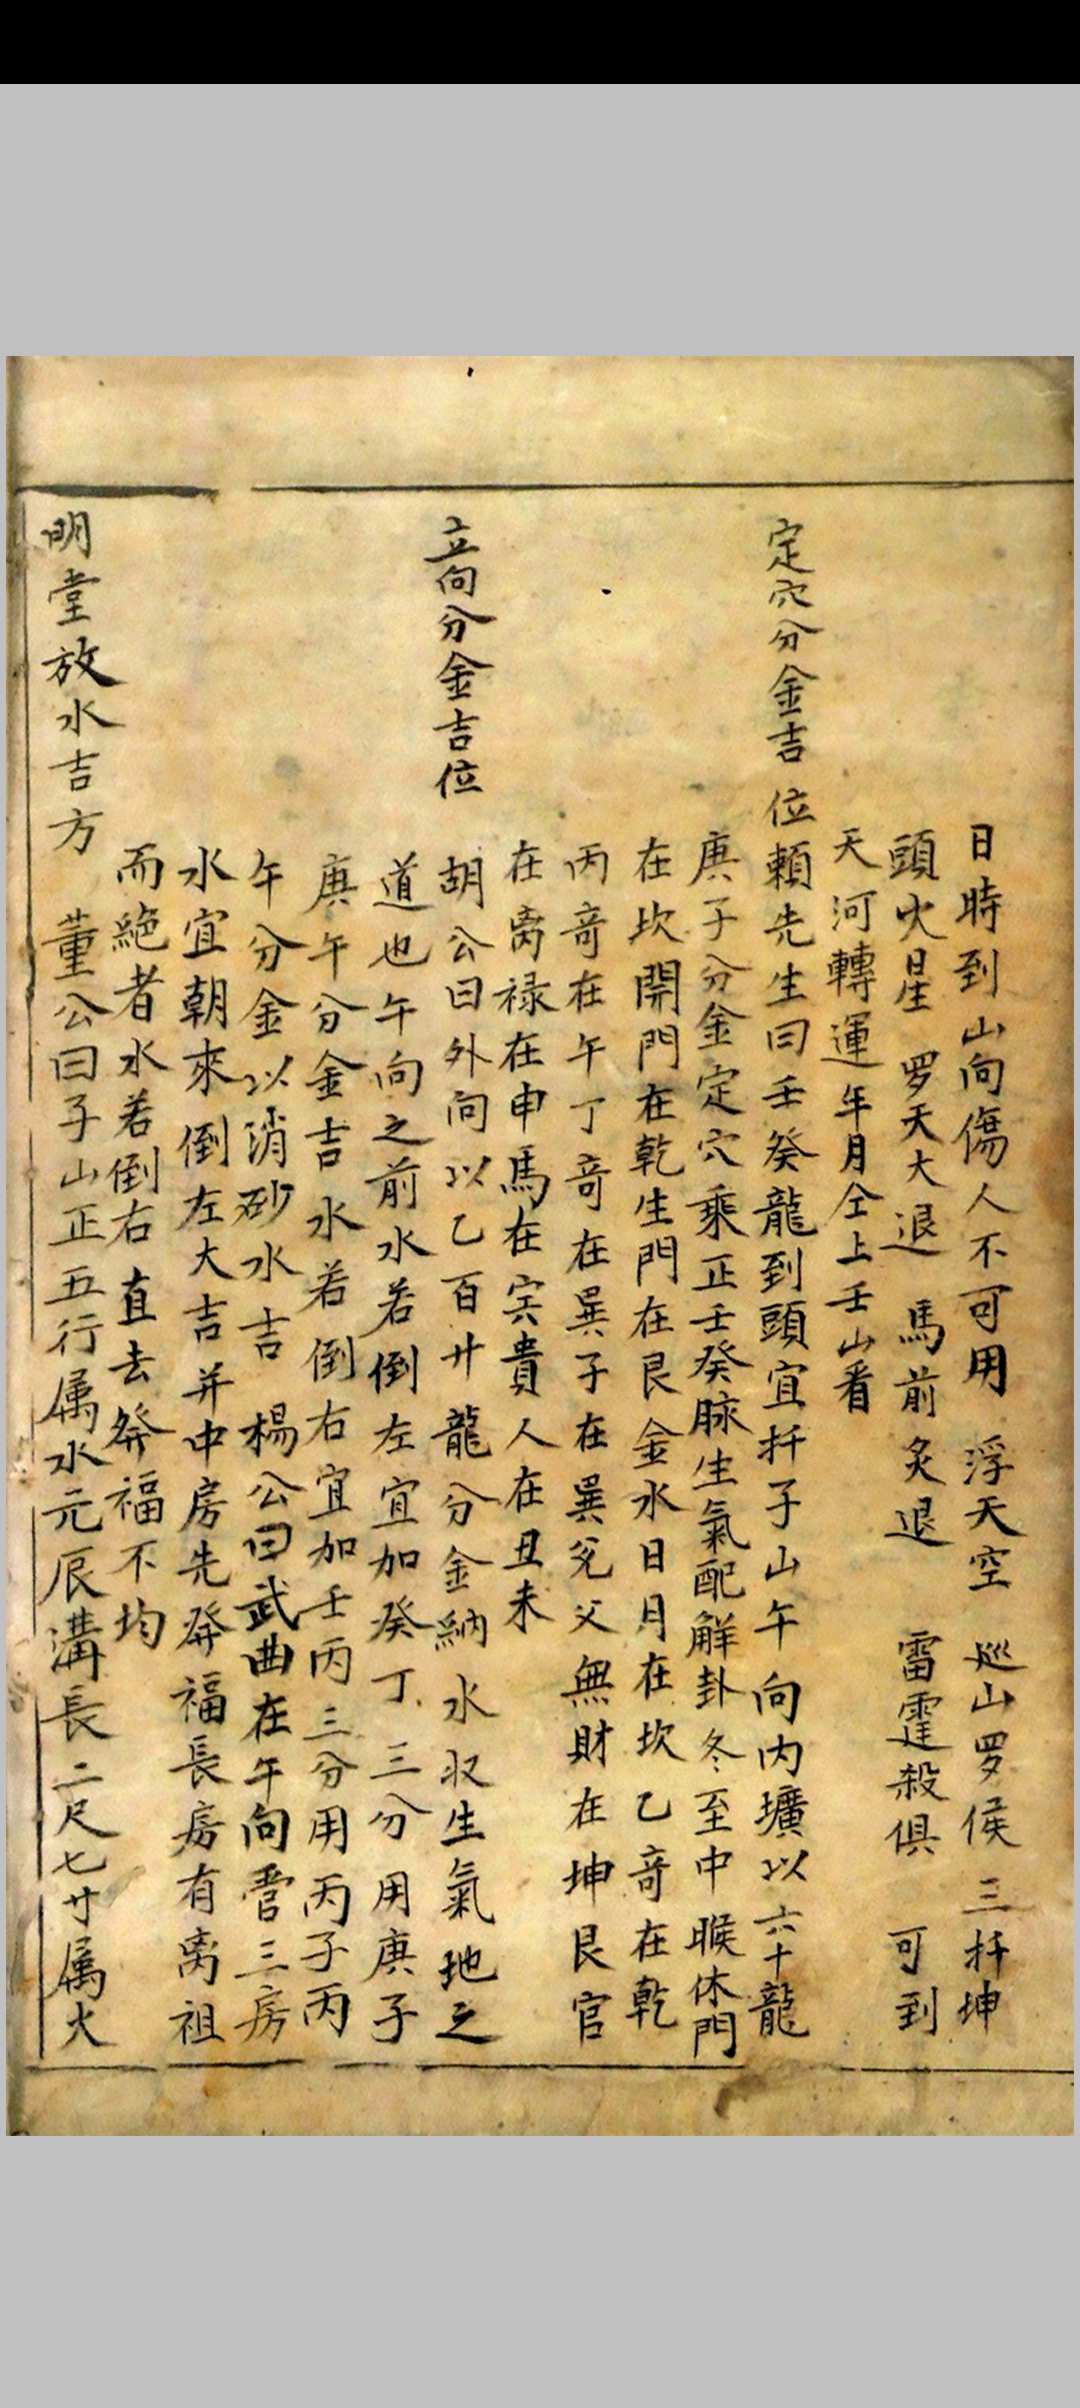 日時到山向傷人不可用 浮天空 巡山罗侯 三扦坤
頭火星 罗天大退 馬前炙退 雷霆殺俱 可到
天河轉運年月仝上壬山看
定穴分金吉位 賴先生曰壬癸龍到頭宜扦子山午向内壙以六十龍
庚子分金定穴乘正壬癸脉生氣配解卦冬至中睺休門
在坎開門在乾生門在艮金水日月在坎乙竒在乾
丙竒在午丁竒在巽子在巽兊父無財在坤艮官
在离禄在申馬在寅貴人在丑未
立向分金吉位 胡公曰外向以乙百廿龍分金納水収生氣地之
道也午向之前水若倒左宜加癸丁三分用庚子
庚午分金吉水若倒右宜加壬丙三分用丙子丙
午分金以消砂水吉 楊公曰武曲在午向 三房
水宜朝來倒左大吉并中房先發福長房有离祖
而絕者水若倒右直去發福不均
明堂放水吉方 董公曰子山正五行属水元辰溝長二尺七寸属火